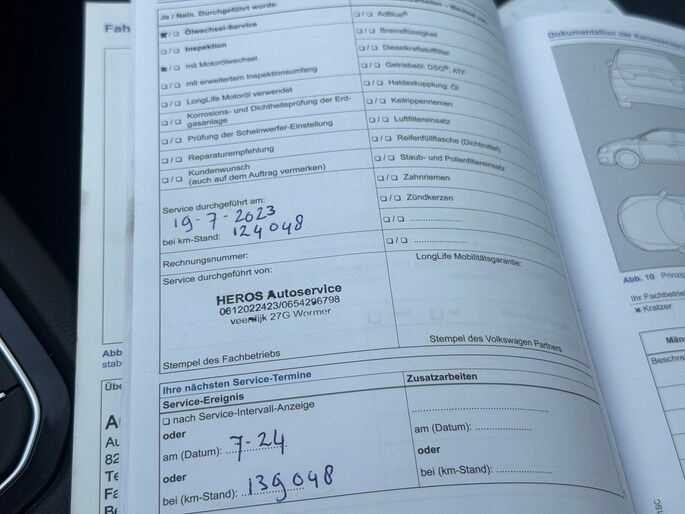 Fah
Ja / Nein. Durchgeführt wurde:
Ölwechsel-Service
Inspektion
mit Motorölwechsel
mit erweitertem Inspektionsumfang
LongLife Motoröl verwendet
Korrosions- und Dichtheitsprüfung der Erd-
gasanlage
Prüfung der Scheinwerfer-Einstellung
Reparaturempfehlung
Kundenwunsch
(auch auf dem Auftrag vermerken)
AdBlue®
Bremsflüssigkeit
Dieselkraftstofffilter
Getriebeöl: DSG®, ATF
Haldexkupplung: Öl
Keilrippenriemen
Luftfiltereinsatz
Reifenfüllflasche (Dichtmittel)
Staub- und Pollenfiltereinsatz
Zahnriemen
Zündkerzen
Service durchgeführt am:
19-7-2023
bei km-Stand: 124048
Rechnungsnummer:
Service durchgeführt von:
HEROS Autoservice
0612022423/0654296798
27G Wormer
Stempel des Fachbetriebs
LongLife Mobilitätsgarantie:
Stempel des Volkswagen Partners
Ihre nächsten Service-Termine
Service-Ereignis
nach Service-Intervall-Anzeige
oder
am (Datum): 7-24
oder
bei (km-Stand): 139048
Zusatzarbeiten
am (Datum):
oder
bei (km-Stand):
Dokumentation der
Abb. 10 Prinzip
Ihr Fachbetrie
Kratzer
Män
Beschre
Abb
stab
Übe
A
Au
82
Te
Fa
Be